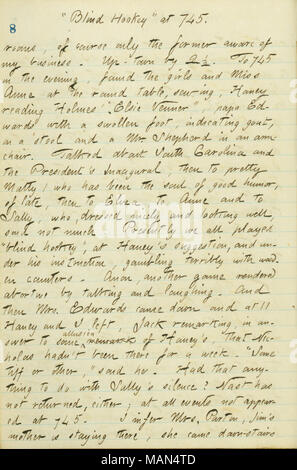 8
"Blind Hookey" at 745.
rooms, of course only the former aware of
my business. Up-town by 2½. To 745
in the evening, found the girls and Miss
Anne at the round table, sewing, Haney
reading Holmes' "Elsie Venner", papa Ed-
wards with a swollen foot, indicating gout,
on a stool and a Mr Shepherd in an arm
chair. Talked about South Carolina and
the President's Inaugural, then to pretty
Matty, who has been the soul of good humor,
of late, then to Eliza, to Anne and to
Sally, who dressed nicely and looking well,
said not much. Presently we all played
"blind hookey", at Haney's suggestion, and un-
der his instruction, gambling terribly with wood-
en counters. Anon, another game rendered
abortive by talking and laughing. And
then Mrs. Edwards came down and at 11
Haney and I left, Jack remarking, in an-
swer to some allusion of Haney's, that Nic-
holas hadn't been there for a week. "Some
tiff or other," said he. Had that any-
thing to do with Sally's silence? Nast has
not returned, either, at all events not appear-
ed at 745. I infer Mrs. Parton, Jim's
mother is staying there, she came down-stairs
alamy
Image ID: MAN4TD
www.alamy.com